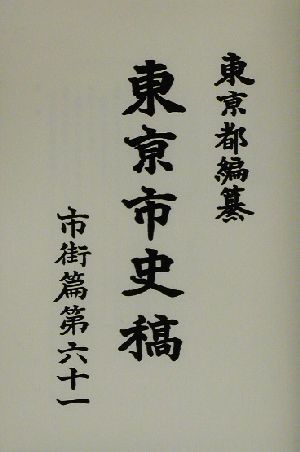 東京都編纂
東京市史稿
市街篇第六十一